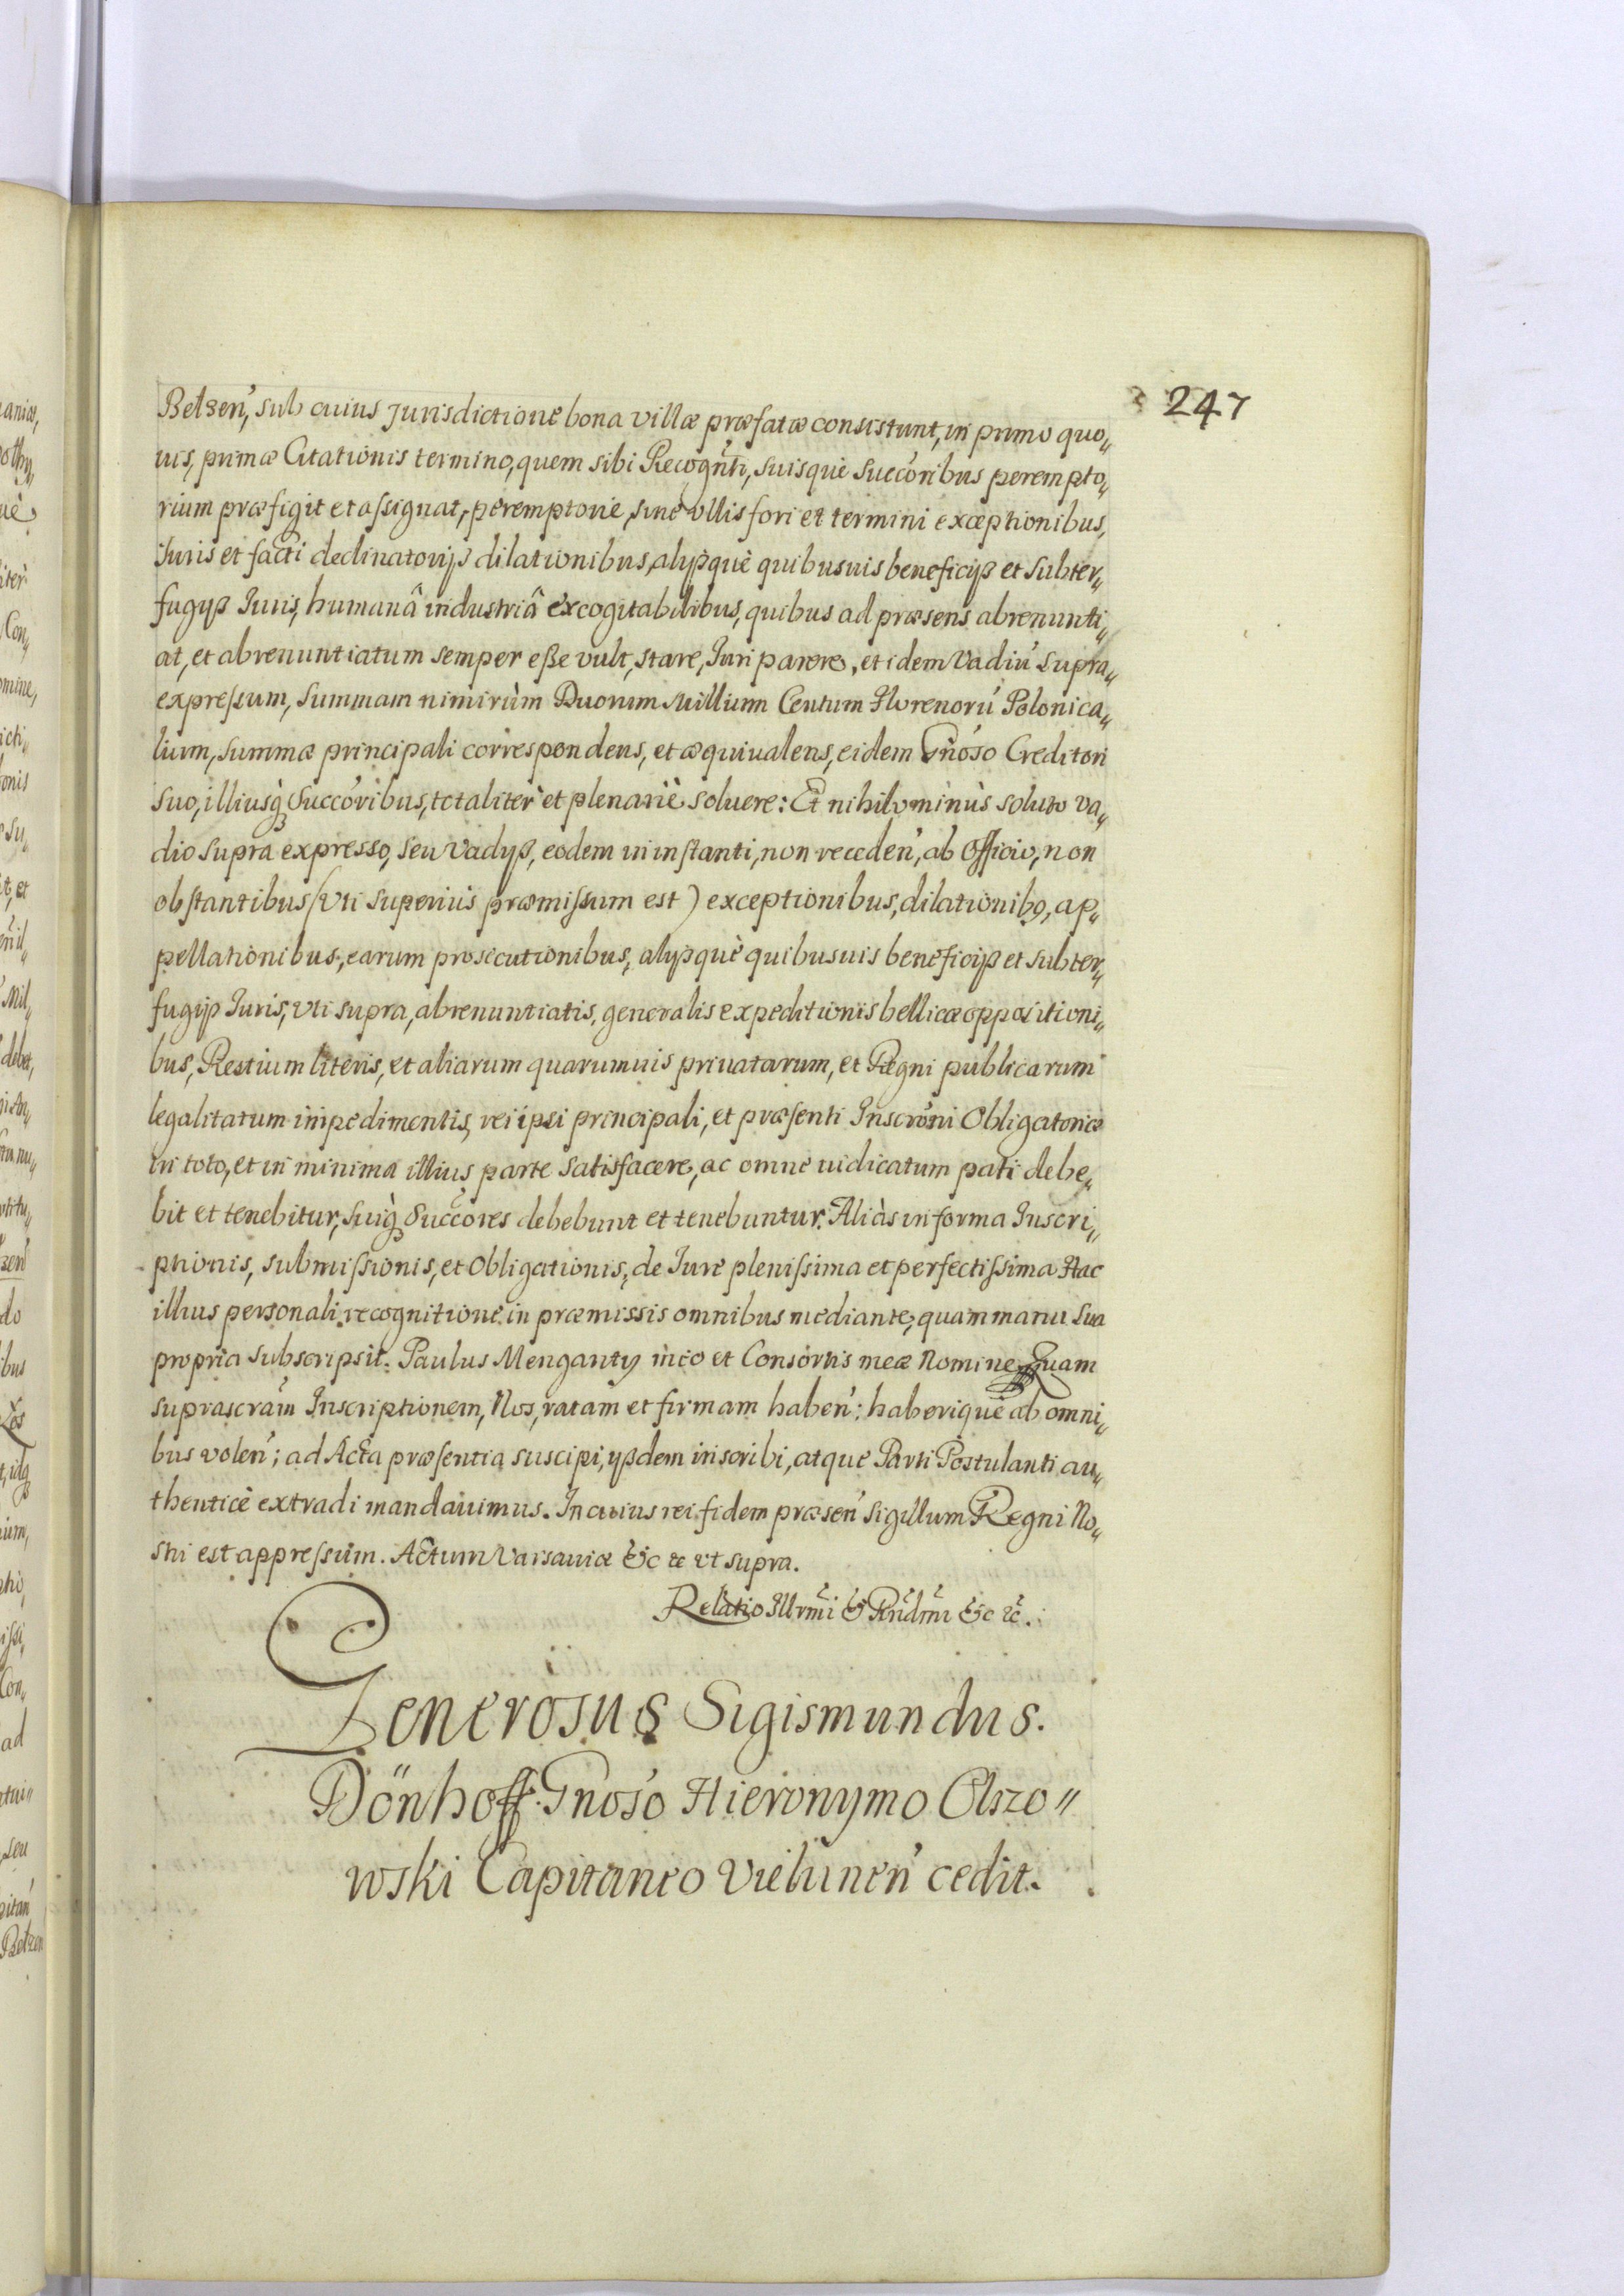 247
Belzeń, sub cuius Jurisdictione bona villæ præfatæ consistunt, in primo quo„
uis, primæ Citationis termino, quem sibi Recognti, suisquè Succoribus perempto„
rium præfigit et assignat, peremptorie, sine ullis fori et termini exceptionibus,
Juris et facti declinatorijs dilationibus, alijsquè quibusuis beneficijs et subter„
fugijs Juris, humanâ industriâ excogitabilibus, quibus ad præsens abrenunti„
at, et abrenuntiatum semper esse vult, stare, Juri parere, et idem Vadiū supra„
expressum, summam nimirùm Duorum Millium Centum Florenorū Polonica„
lium, summæ principali correspondens, et æquiualens, eidem Gnoso Creditori
suo, illiusq; Succoribus, totaliter et plenariè soluere: Et nihilominùs soluto va„
dio supra expresso, seu Vadijs, eodem in instanti, non receden, ab Officio, non
obstantibus (Vti superius præmissum est) exceptionibus, dilationib9, ap„
pellationibus, earum prosecutionibus, alijsquè quibusuis beneficijs et subter„
fugijs Juris, vti supra, abrenuntiatis, generalis expeditionis bellicæ oppositioni„
bus, Restium literis, et aliarum quarumuis priuatarum, et Regni publicarum
legalitatum impedimentis, rei ipsi principali, et præsenti Inscroni Obligatoriæ
in toto, et in minima illius parte satisfacere, ac omne iudicatum pati debe„
bit et tenebitur, suiq; Succores debebunt et tenebuntur. Aliàs in forma Inscri„
ptionis, submissionis, et Obligationis, de Jure plenissima et perfectissima Hac
illius personali recognitione in præmissis omnibus mediante, quam manu sua
propria subscripsit. Paulus Menganty meo et Consortis meæ Nomine. Quam
suprascram Inscriptionem, Nos, ratam et firmam haben: haberique ab omni„
bus volen; ad Acta præsentia suscipi, ijsdem inscribi, atque Parti Postulanti au„
thenticè extradi mandauimus. In cuius rei fidem præsen Sigillum Regni No„
stri est appressum. Actum Varsauiæ &c &c vt supra.
Relatio Illrmi & Rndmi &c &c.
Generosus Sigismundus.
Dönhoff Gnoso Hieronymo Olszo„
wski Capitaneo Vielunen cedit.